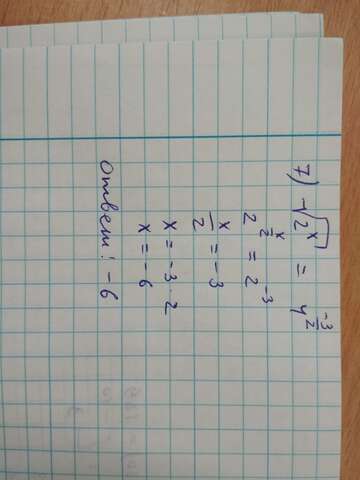 7) √2ˣ = 4^(-3/2)
2^(x/2) = 2^(-3)
x/2 = -3
x = -3 · 2
x = -6
Ответ: -6